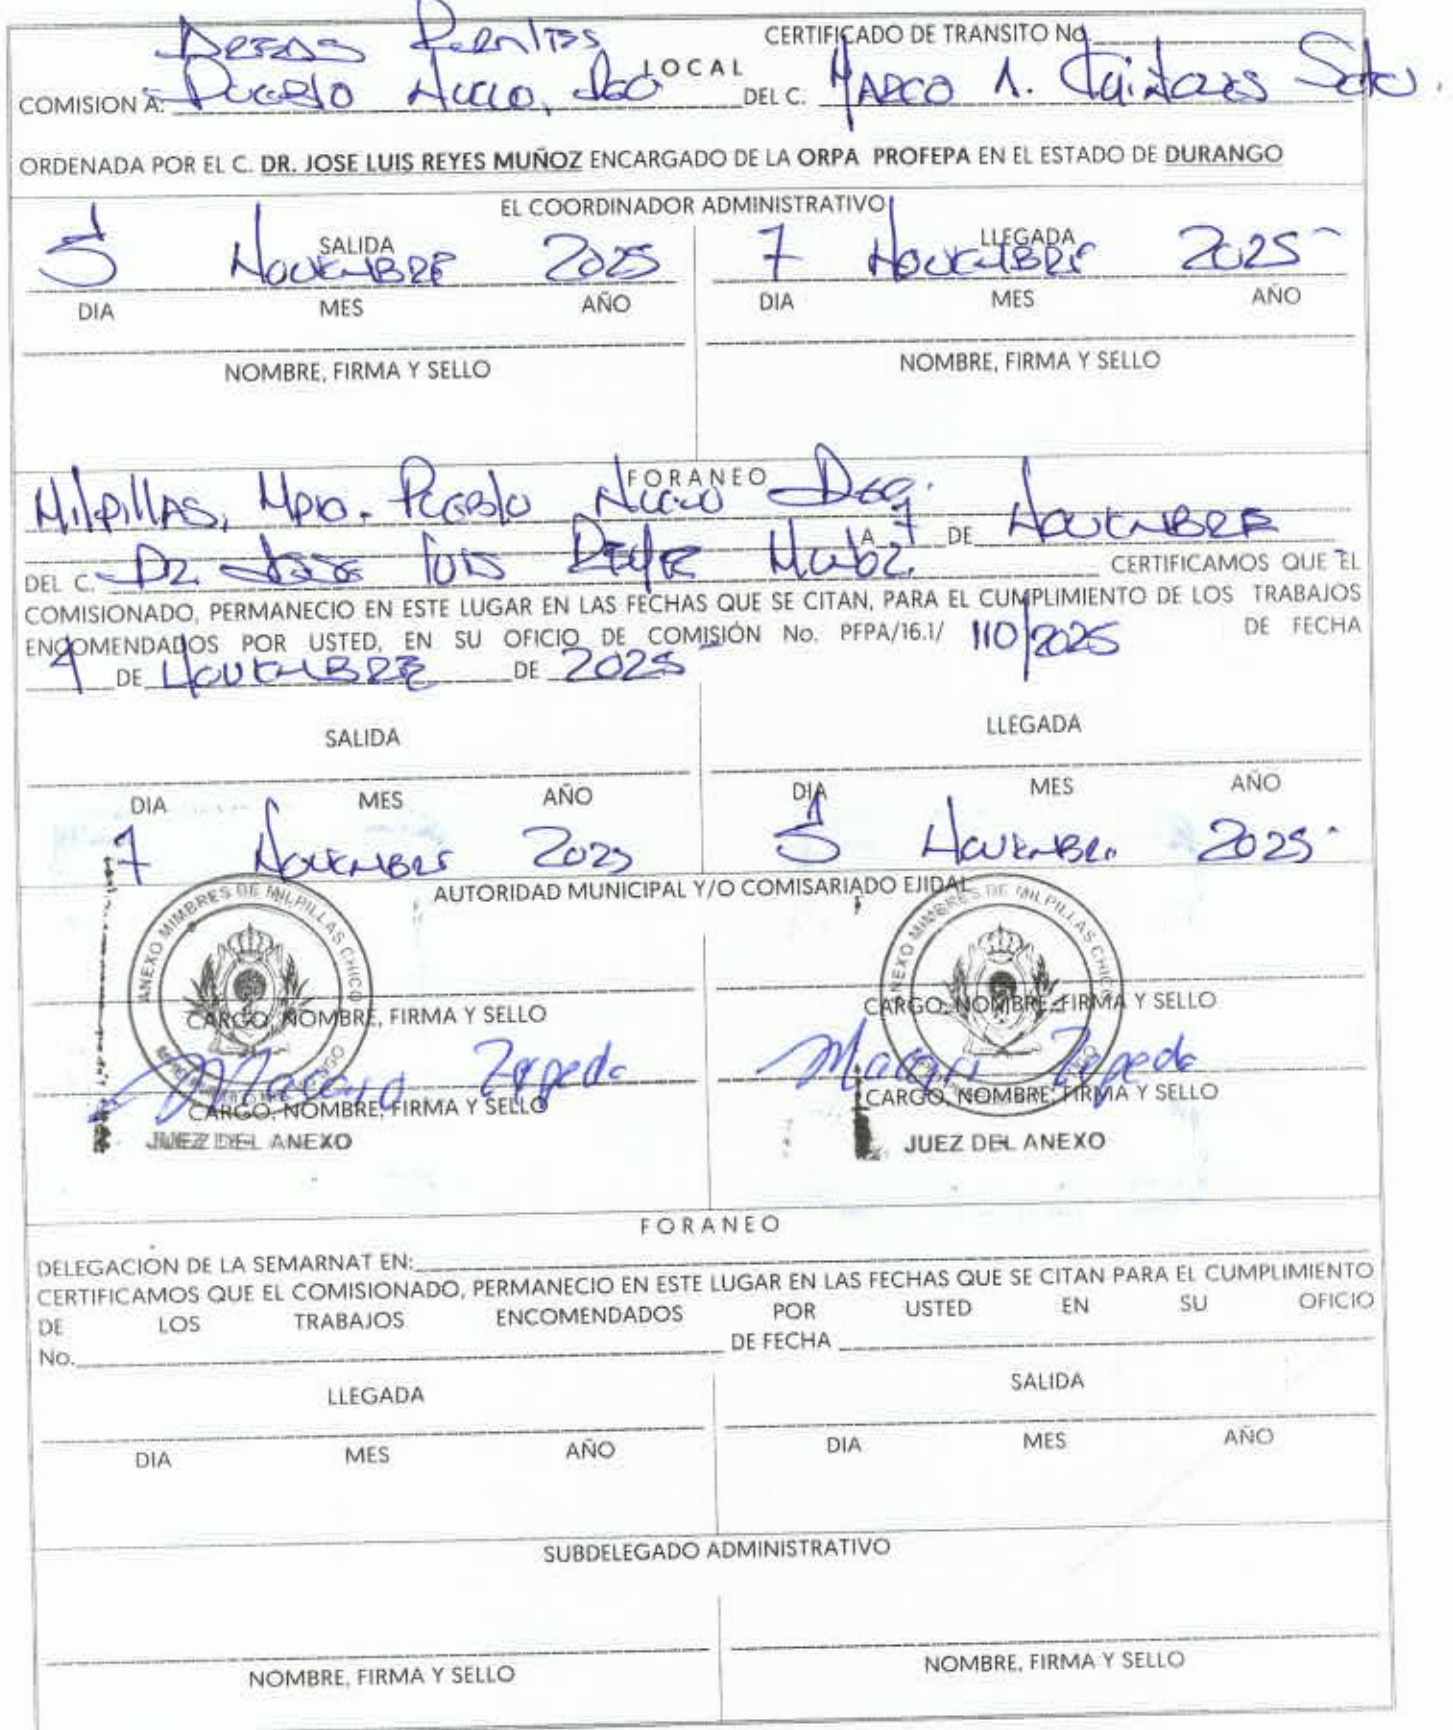 CERTIFICADO DE TRANSITO No
LOCAL
COMISION A: Pueblo Nuevo, Dgo DEL C. Marco A. Quiñones Soto.
ORDENADA POR EL C. DR. JOSE LUIS REYES MUÑOZ ENCARGADO DE LA ORPA PROFEPA EN EL ESTADO DE DURANGO
EL COORDINADOR ADMINISTRATIVO
SALIDA LLEGADA
5 Noviembre 2025 7 Noviembre 2025
DIA MES AÑO DIA MES AÑO
NOMBRE, FIRMA Y SELLO NOMBRE, FIRMA Y SELLO
FORANEO
Milpillas, Mpio. Pueblo Nuevo Dgo. A 7 DE Noviembre
DEL C. Dr. Jose Luis Reyes Muñoz. CERTIFICAMOS QUE EL
COMISIONADO, PERMANECIO EN ESTE LUGAR EN LAS FECHAS QUE SE CITAN, PARA EL CUMPLIMIENTO DE LOS TRABAJOS
ENCOMENDADOS POR USTED, EN SU OFICIO DE COMISIÓN No. PFPA/16.1/ 110/2025 DE FECHA
DE Noviembre DE 2025
SALIDA LLEGADA
DIA MES AÑO DIA MES AÑO
7 Noviembre 2025 5 Noviembre 2025
AUTORIDAD MUNICIPAL Y/O COMISARIADO EJIDAL
ANEXO MIMBRES DE MILPILLAS CHICO ANEXO MIMBRES DE MILPILLAS CHICO
CARGO, NOMBRE, FIRMA Y SELLO CARGO, NOMBRE, FIRMA Y SELLO
Zepeda Zepeda
CARGO, NOMBRE, FIRMA Y SELLO CARGO, NOMBRE, FIRMA Y SELLO
JUEZ DEL ANEXO JUEZ DEL ANEXO
FORANEO
DELEGACIÓN DE LA SEMARNAT EN:
CERTIFICAMOS QUE EL COMISIONADO, PERMANECIO EN ESTE LUGAR EN LAS FECHAS QUE SE CITAN PARA EL CUMPLIMIENTO
DE LOS TRABAJOS ENCOMENDADOS POR USTED EN SU OFICIO
No. DE FECHA
LLEGADA SALIDA
DIA MES AÑO DIA MES AÑO
SUBDELEGADO ADMINISTRATIVO
NOMBRE, FIRMA Y SELLO NOMBRE, FIRMA Y SELLO